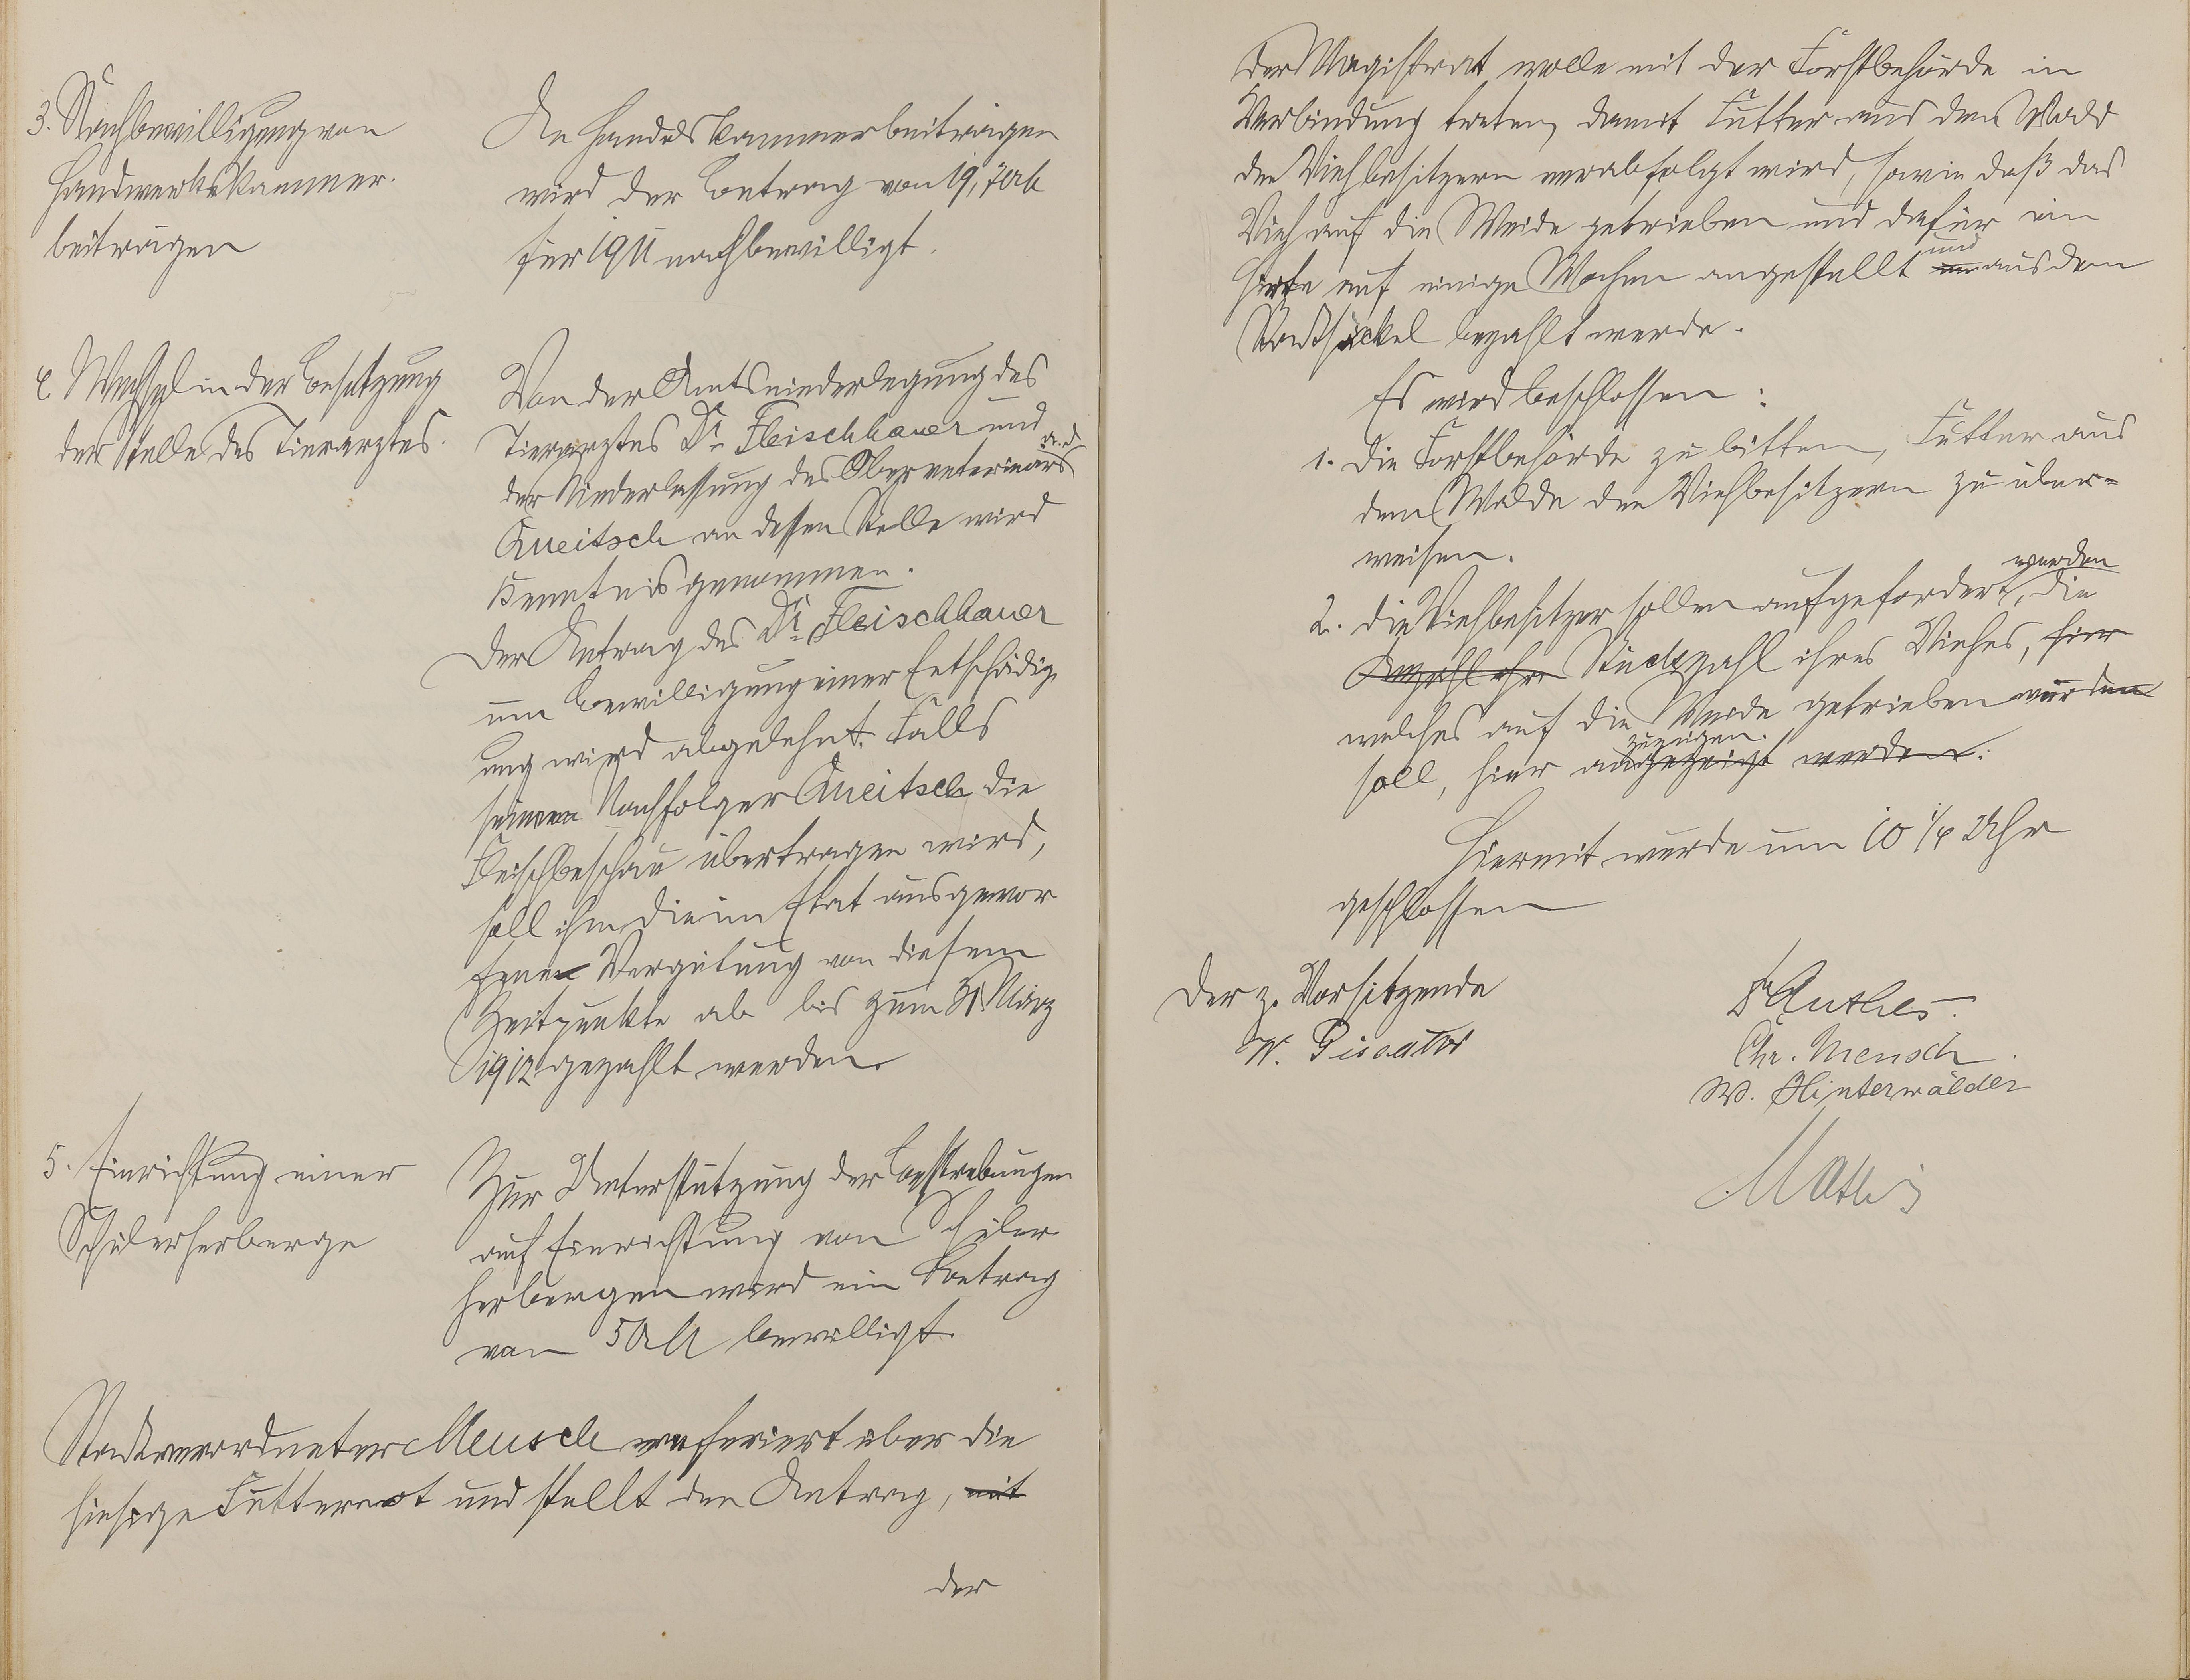 3. Nachbewilligung von
Handwerkskammer-
beiträgen
An Handelskammerbeiträgen
wird der Betrag von 19,70 M
für 1911 nachbewilligt.
4. Wechsel in der Besetzung
der Stelle des Tierarztes.
Von der Amtsniederlegung des
Tierarztes Dr. Fleischhauer und
der Niederlassung des Oberveterinärs a. D.
Kneitsch an dessen Stelle wird
Kenntnis genommen.
Der Antrag des Dr. Fleischhauer
um Bewilligung einer Entschädig-
ung wird abgelehnt. Falls
seinem Nachfolger Kneitsch die
Fleischbeschau übertragen wird,
soll ihm die im Etat ausgewor
fene Vergütung von diesem
Zeitpunkte ab bis zum 31 März
1912 gezahlt werden.
5. Einrichtung einer
Schülerherberge
Zur Unterstützung der Bestrebungen
auf Einrichtung von Schüler
herbergen wird ein Betrag
von 50 M bewilligt.
Stadtverordneter Mensch referiert über die
hiesige Futternot und stellt den Antrag, mit
der
Der Magistrat wolle mit der Forstbehörde in
Verbindung treten, damit Futter aus dem Wald
den Viehbesitzern verabfolgt wird, sowie daß das
Vieh auf die Weide getrieben und dafür ein
Hirte auf einige Wochen angestellt und aus dem
Stadtsäckel bezahlt werde.
Es wird beschlossen:
1. die Forstbehörde zu bitten, Futter aus
dem Walde den Viehbesitzern zu über-
weisen.
2. die Viehbesitzer sollen aufgefordert werden, die
Anzahl ihre Stückzahl ihres Viehes, hier
welches auf die Weide getrieben werden
soll, hier anzuzeigen. angezeigt werden.
Hiermit wurde um 10 1/4 Uhr
geschlossen
Der z. Vorsitzende
W. Piscator
F Anthes.
Chr. Mensch.
W. Hinterwälder
Mathis